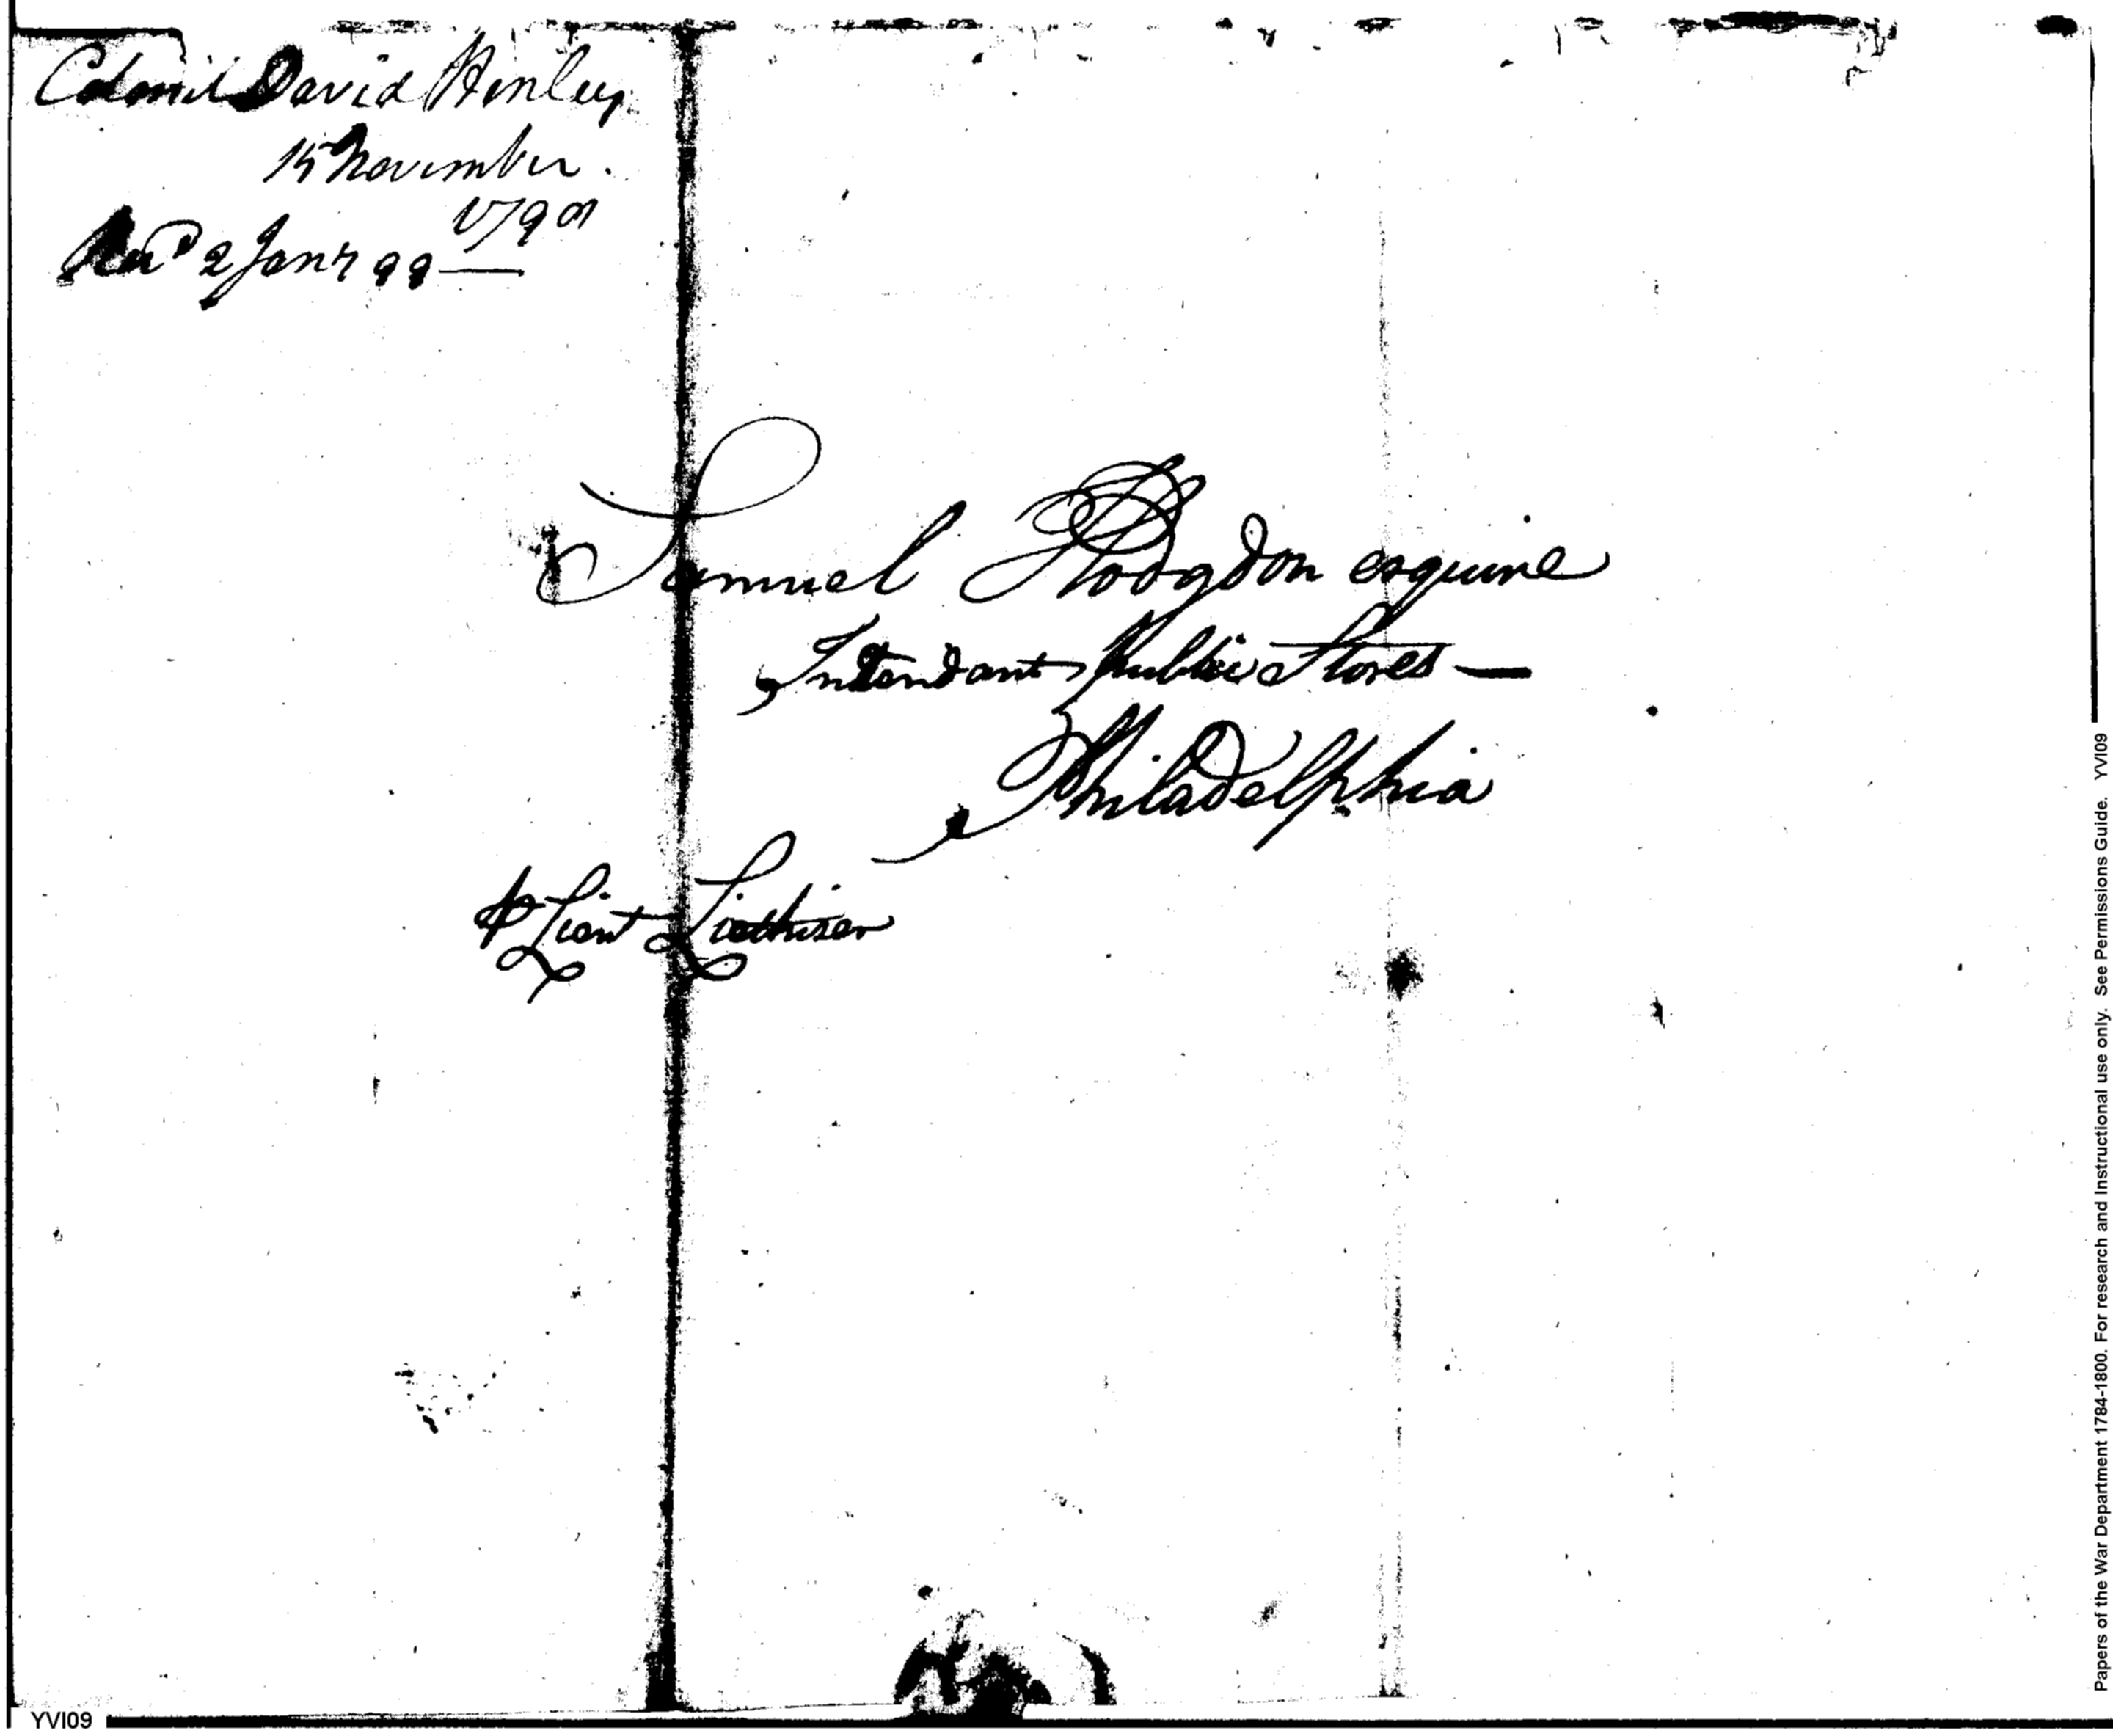 Colonel David Henley
15 November.
1798
Rec'd 2 Jany 99 —
Samuel Hodgdon esquire
Intendant Public Stores —
Philadelphia
Lieut
Papers of the War Department 1784-1800. For research and Instructional use only. See Permissions Guide. YVI09
YVI09